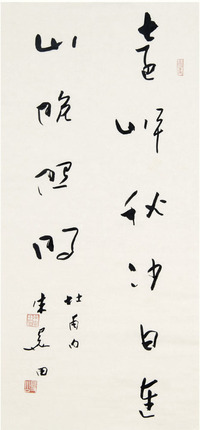 遠岸秋沙白連
山晚照紅
杜甫句
朱關田